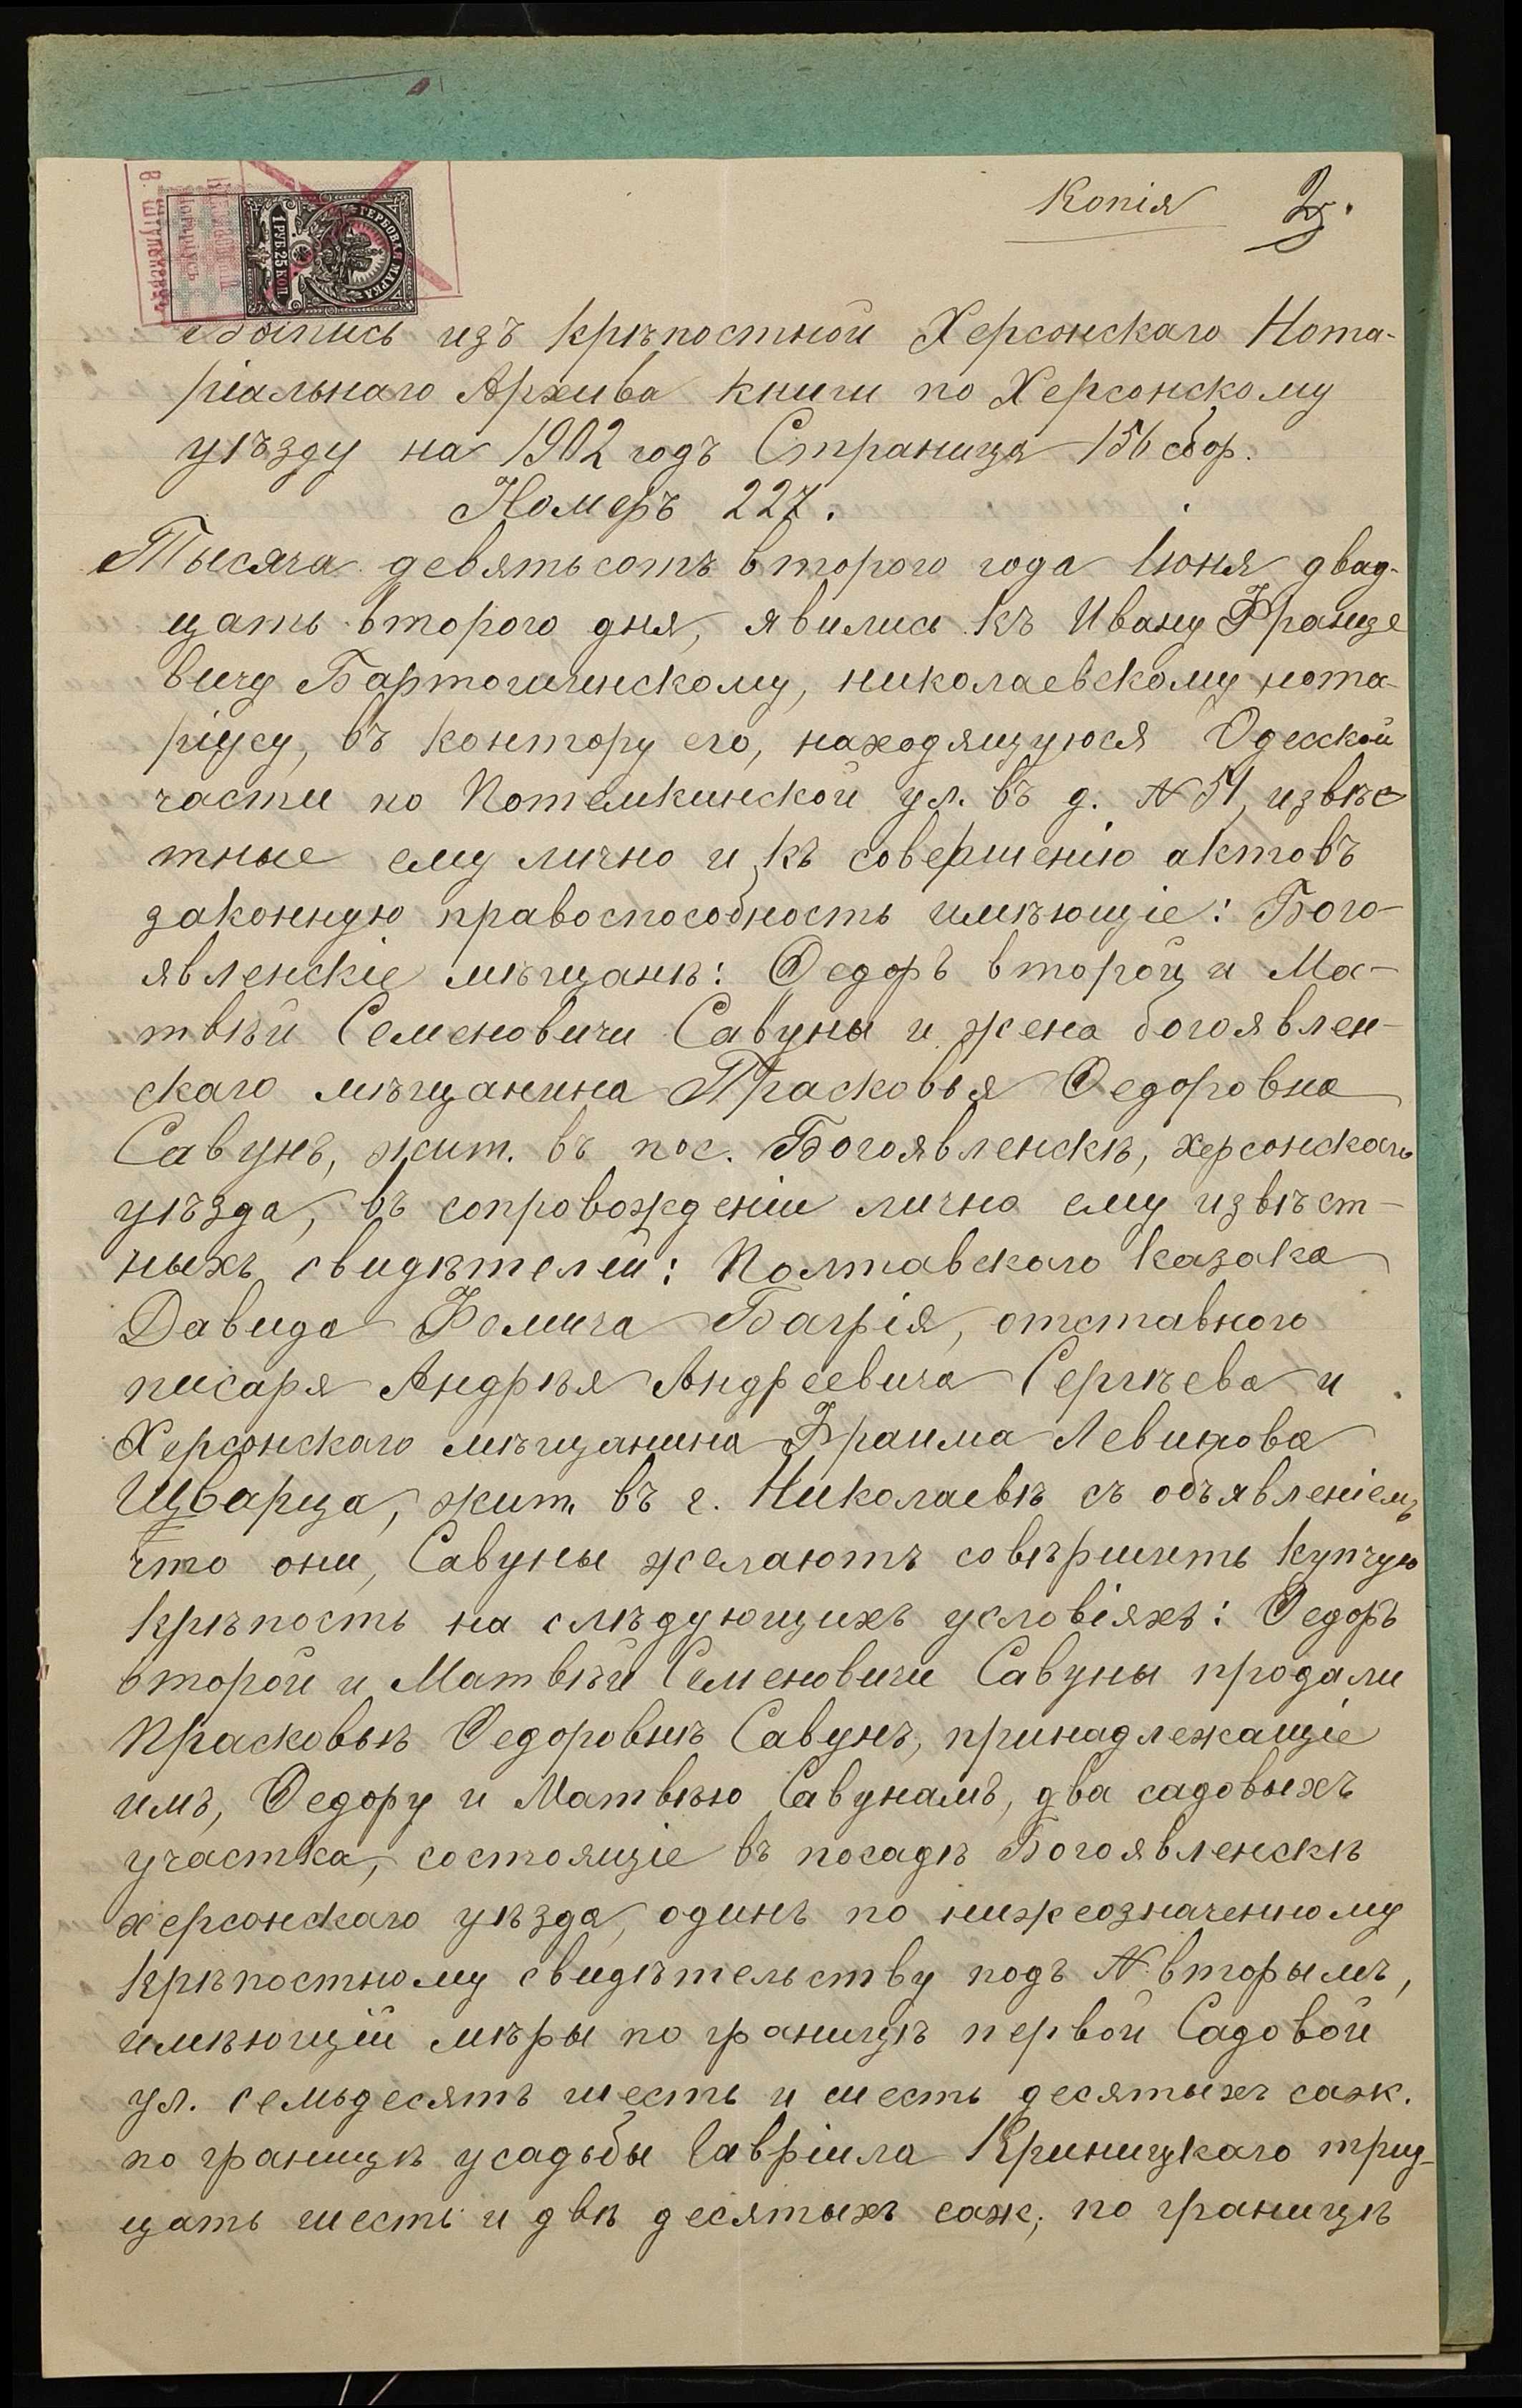 Копія 2.
ГЕРБОВАЯ МАРКА
1 РУБ. 25 КОП.
Выпись изъ крѣпостной Херсонскаго Нота-
ріальнаго Архива книги по Херсонскому
уѣзду на 1902 годъ Страница 156 сбор.
Номеръ 227.
Тысяча девятьсотъ второго года Іюня двад-
цать второго дня, явились къ Ивану Францe
вичу Бартошинскому, николаевскому нота-
ріусу, въ контору его, находящуюся Одесской
части по Потемкинской ул. въ д. № 51, извѣс
тные ему лично и къ совершенію актовъ
законную правоспособность имѣющіе: Бого-
явленскіе мѣщане: Ѳедоръ второй и Ма-
твѣй Семеновичи Савуны и жена богоявлен-
скаго мѣщанина Прасковья Ѳедоровна
Савунъ, жит. въ пос. Богоявленскѣ, херсонскаго
уѣзда, въ сопровожденіи лично ему извѣст-
ныхъ свидѣтелей: Полтавскаго казака
Давида Фомича Багрія, отставного
писаря Андрѣя Андреевича Сергѣева и
Херсонскаго мѣщанина Фраима Левикова
Шварца, жит. въ г. Николаевѣ съ объявленіемъ
что они, Савуны желаютъ совѣршить купчую
крѣпость на слѣдующихъ условіяхъ: Ѳедоръ
второй и Матвѣй Семеновичи Савуны продали
Прасковьѣ Ѳедоровнѣ Савунъ, принадлежащіе
имъ, Ѳедору и Матвѣю Савунамъ, два садовыхъ
участка, состоящіе въ посадѣ Богоявленскѣ
херсонскаго уѣзда, одинъ по нижеозначенному
крѣпостному свидѣтельству подъ № вторымъ,
имѣющій мѣры по границѣ первой Садовой
ул. семьдесятъ шесть и шесть десятыхъ саж.
по границѣ усадьбы Гавріила Криницкаго трид-
цать шесть и двѣ десятыхъ саж; по границѣ